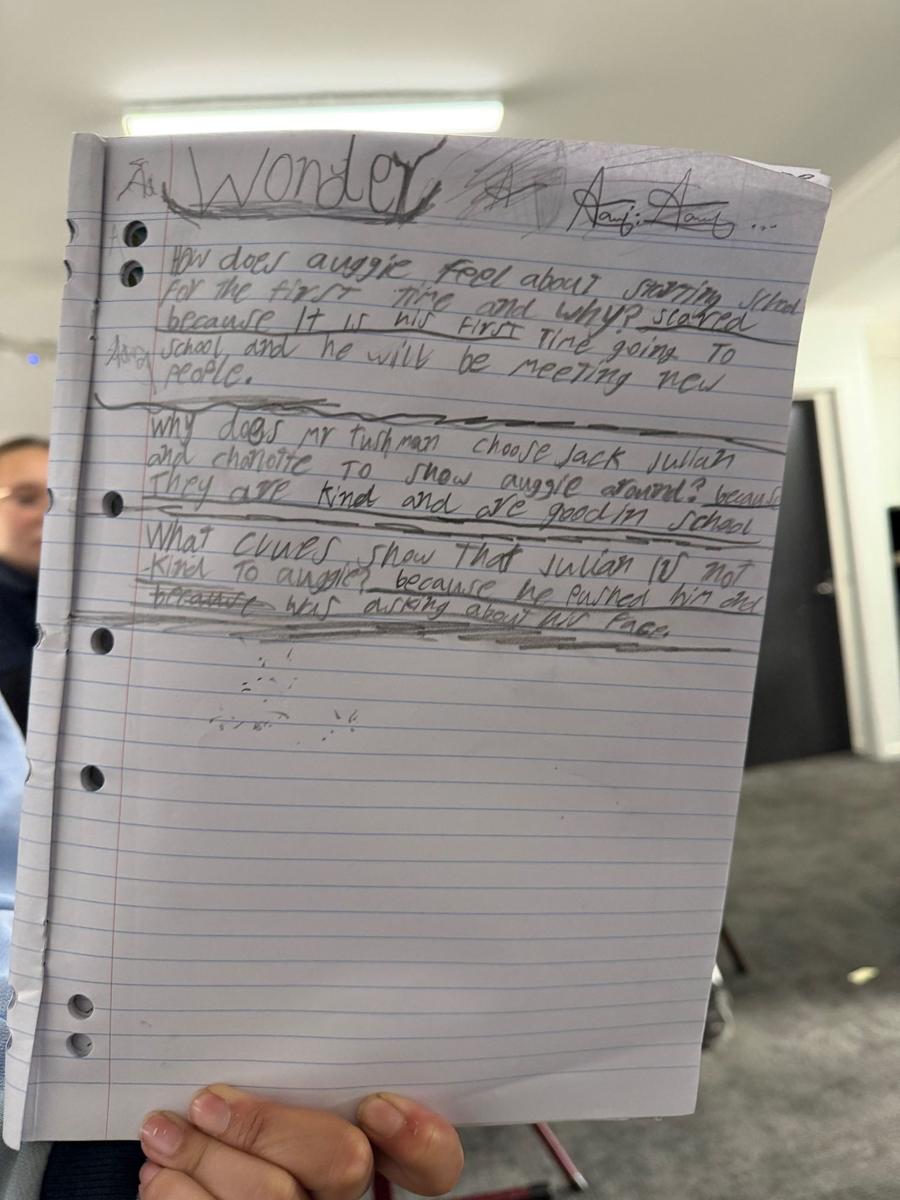 Wonder
How does auggie feel about starting school
for the first time and why? scared
because It is his first time going to
school and he will be meeting new
people.
why does mr tushman choose Jack Julian
and charlotte to show auggie around? because
They are kind and are good in school
What clues show that Julian is not
kind to auggie? because he pushed him and
because was asking about his face.